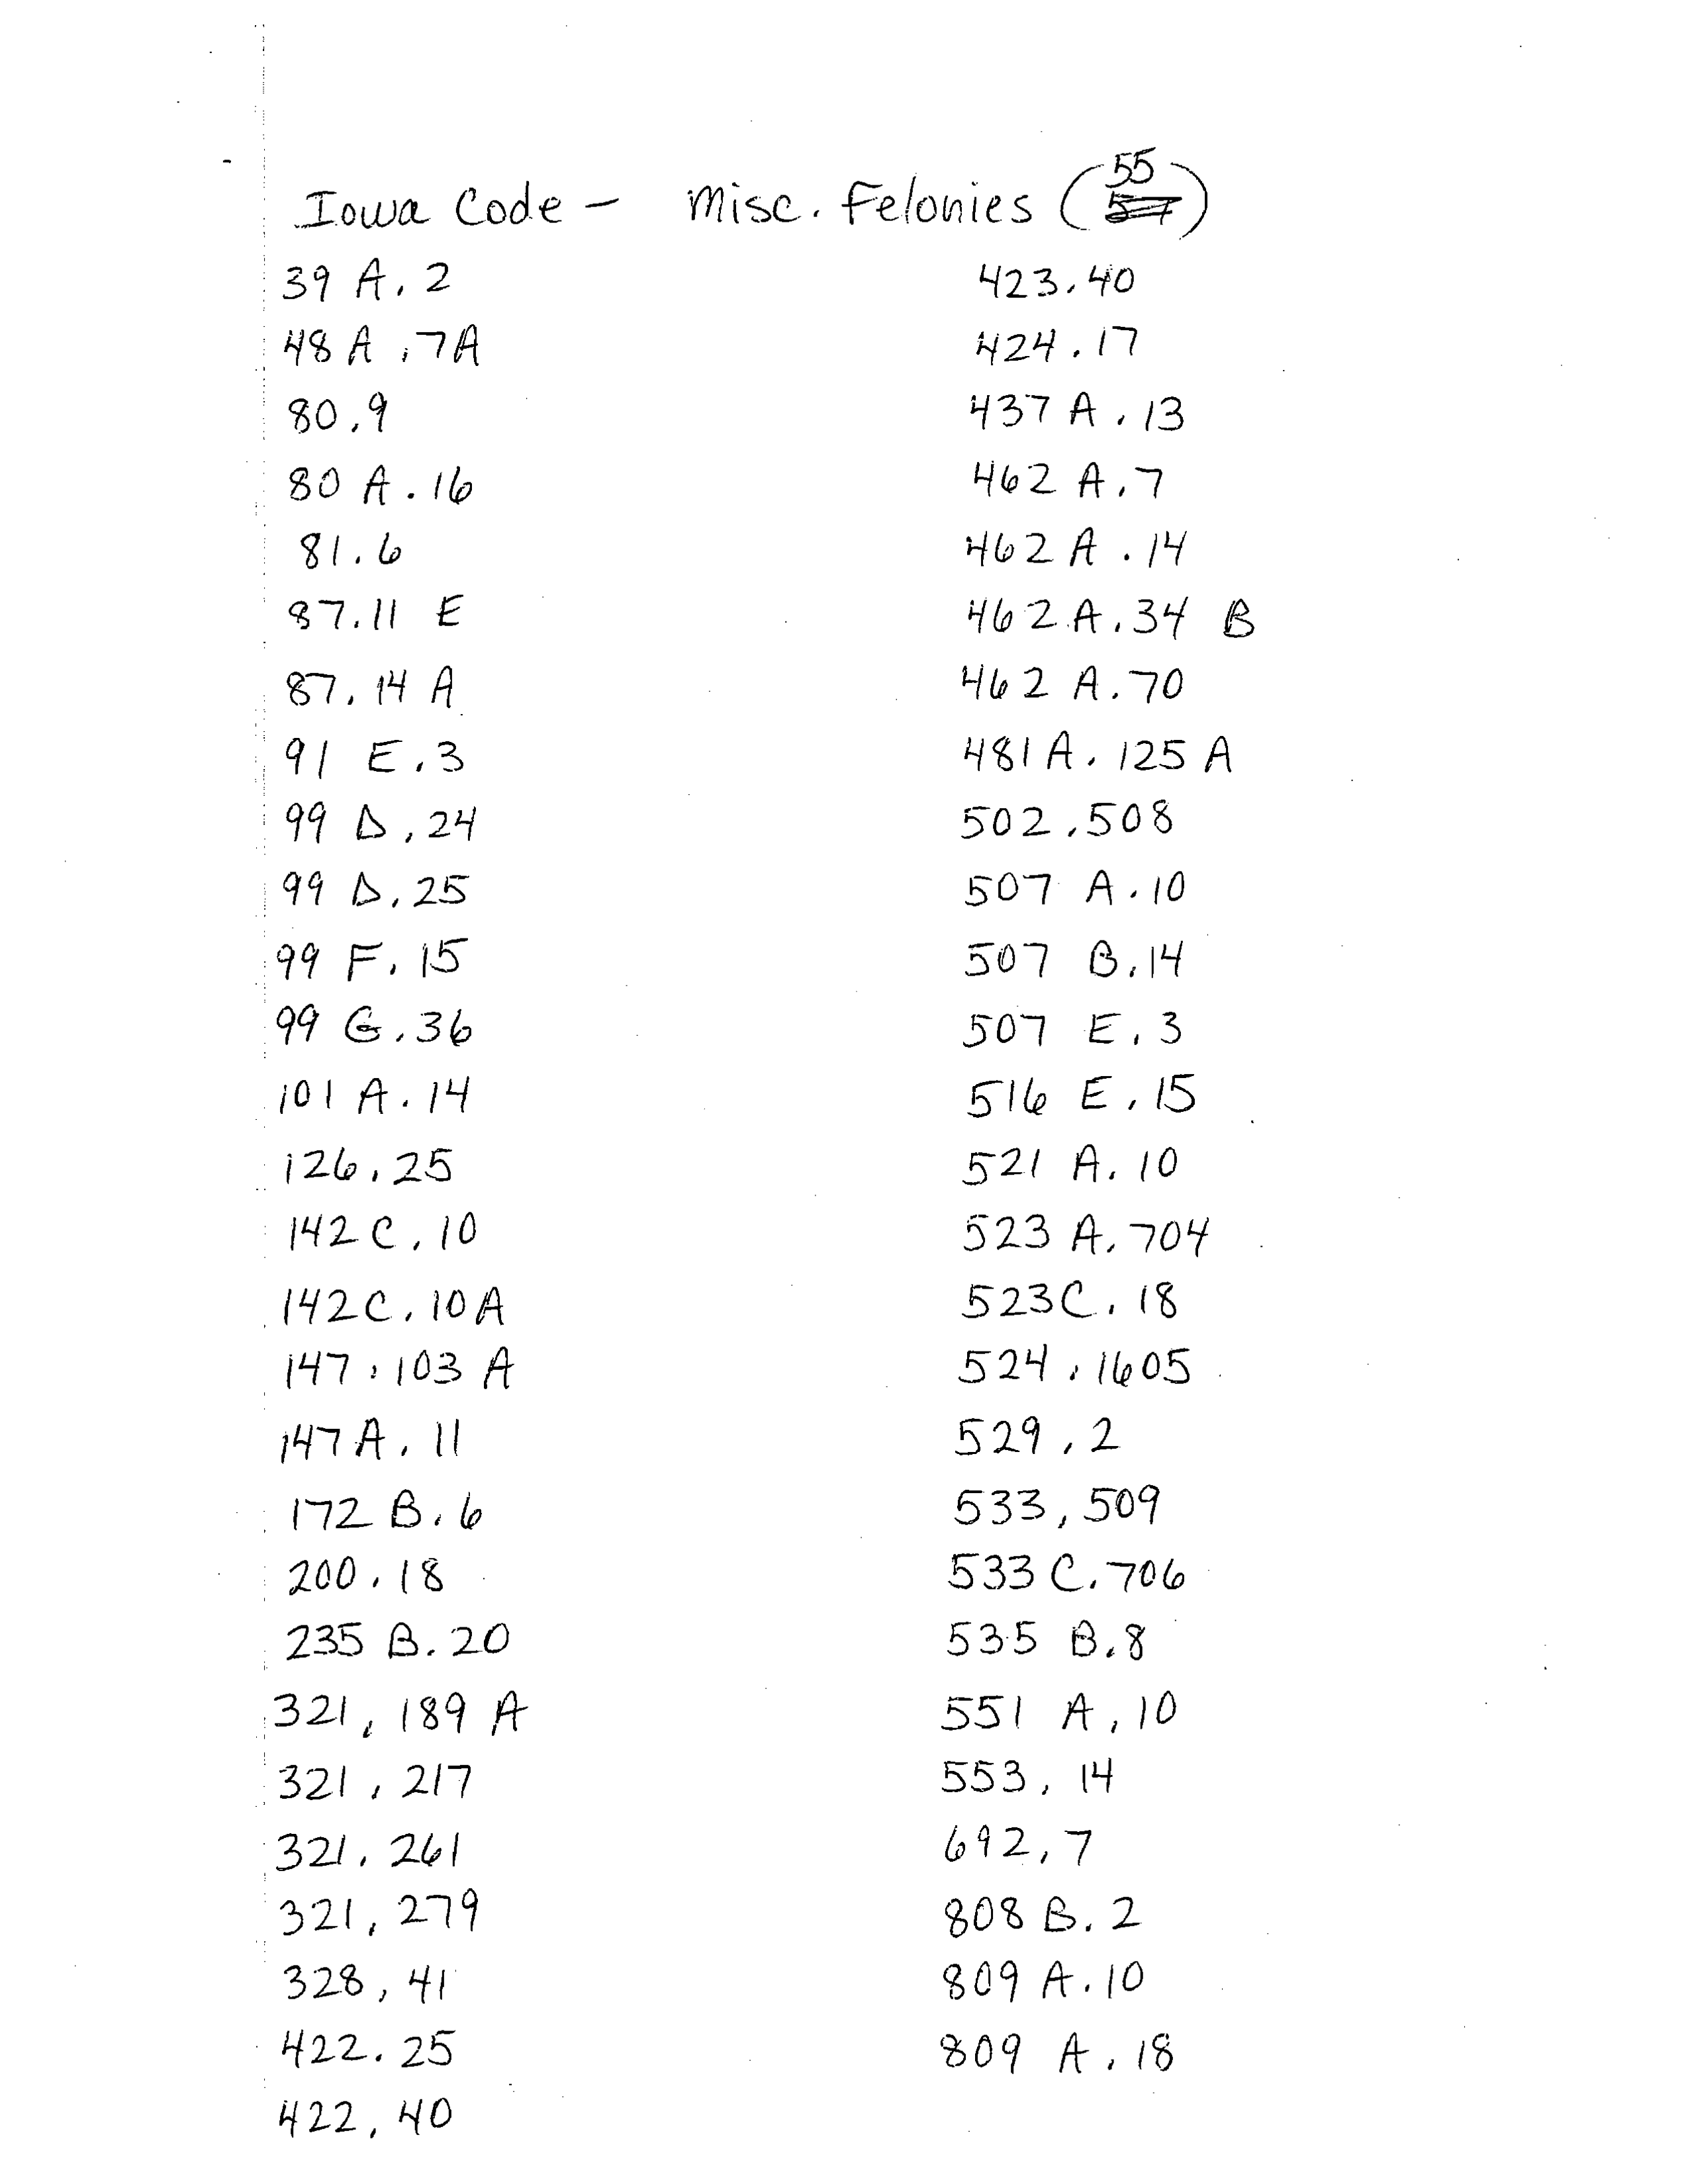 Iowa Code - Misc. Felonies (55)
39 A. 2
48 A. 7A
80.9
80 A. 16
81.6
87.11 E
87.14 A
91 E. 3
99 D. 24
99 D. 25
99 F. 15
99 G. 36
101 A. 14
126.25
142 C. 10
142 C. 10 A
147.103 A
147 A. 11
172 B. 6
200.18
235 B. 20
321.189 A
321.217
321.261
321.279
328.41
422.25
422.40
423.40
424.17
437 A. 13
462 A. 7
462 A. 14
462 A. 34 B
462 A. 70
481 A. 125 A
502.508
507 A. 10
507 B. 14
507 E. 3
516 E. 15
521 A. 10
523 A. 704
523 C. 18
524.1605
529.2
533.509
533 C. 706
535 B. 8
551 A. 10
553.14
692.7
808 B. 2
809 A. 10
809 A. 18